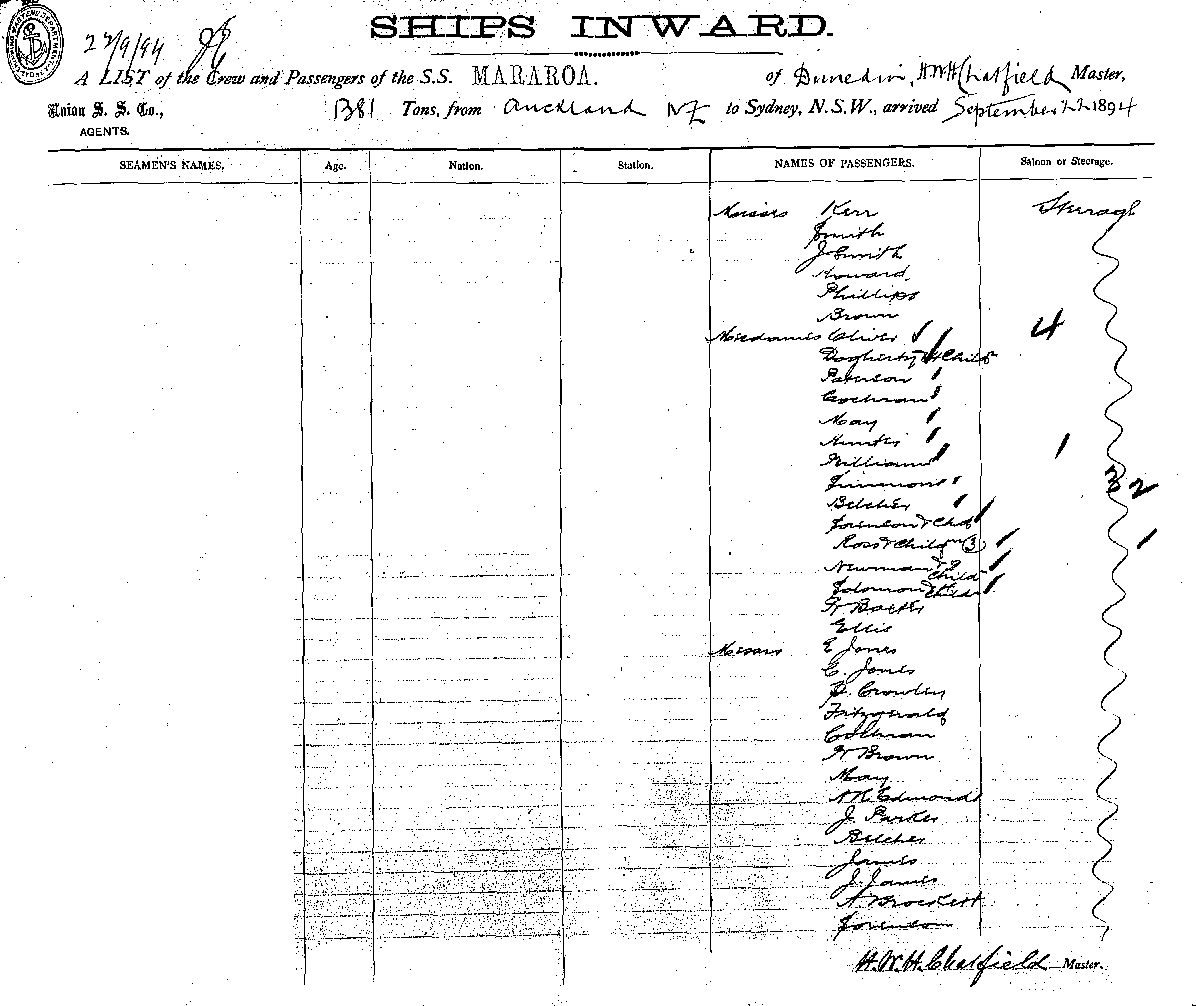 SHIPS INWARD.
22/9/94
A LIST of the Crew and Passengers of the S.S. MARAROA. of Dunedin, HWH Chatfield Master,
Union S. S. Co., 1381 Tons, from Auckland NZ to Sydney, N.S.W., arrived September 22 1894
AGENTS.
SEAMEN'S NAMES. Age. Nation. Station. NAMES OF PASSENGERS. Saloon or Steerage.
Misses Kerr Steerage
Smith
J Smith
Howard
Phillips
Brown
Mesdames Oliver 4
Dogherty & Child
Paterson
Cochran
May
Hunter
Williams 1
Simmons 3 2
Belcher
Sorenson & Child
Ross & Children (3) 1
Newman & 2 Child
Solomon & Child
Ellis
Messrs E Jones
C. Jones
Crowley
Fitzgerald
Cochran
W Brown
May
Edmonds
J. Parker
Belcher
James
J. James
A Brockett
Sorenson
H.W.H. Chatfield Master.